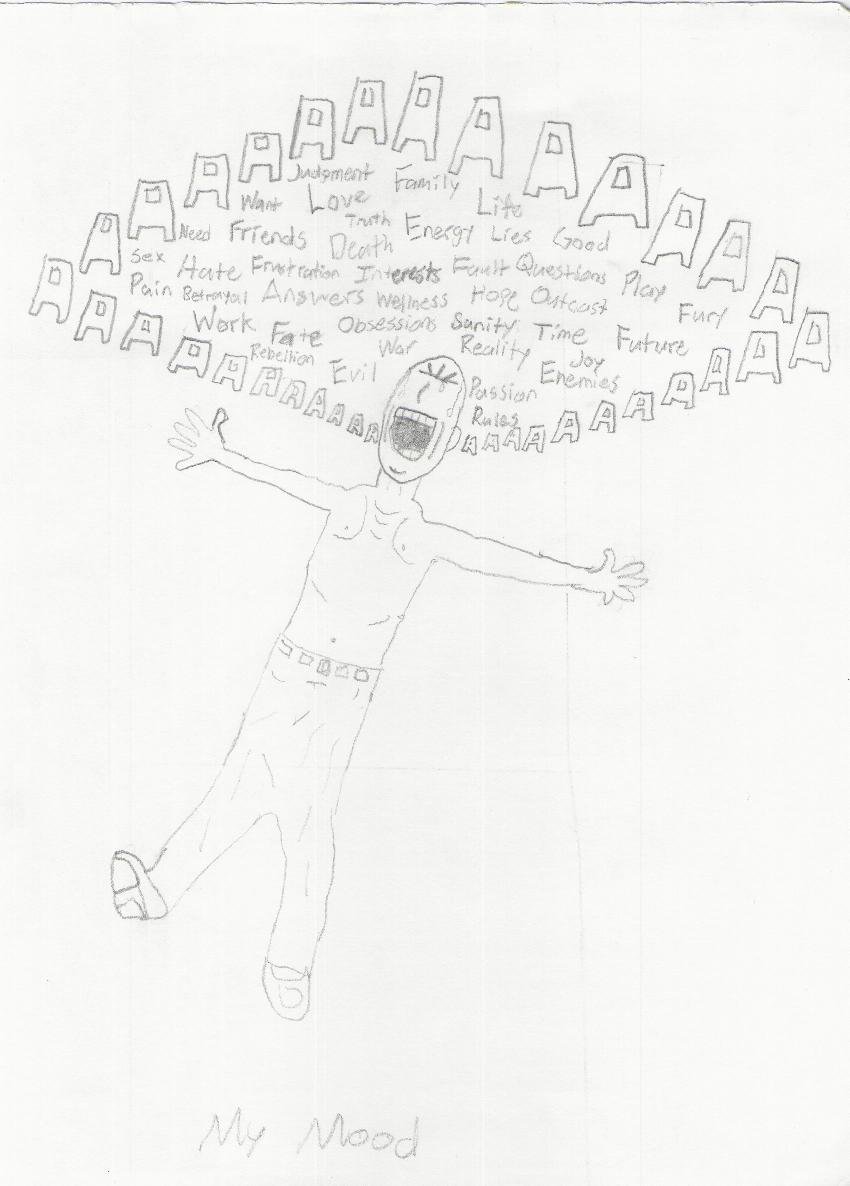 A A A A A A A A A A A A A A A
Judgment Family
Want Love Life
Truth
Need Friends Death Energy Lies Good
Sex Hate Frustration Interests Fault Questions Play
Pain Betrayal Answers Wellness Hope Outcast Fury
Work Fate Obsessions Sanity Time Future
Rebellion War Reality Joy
Evil Passion Enemies
Rules
A A A A A A A A A A
A A A A A A A A A A
My Mood